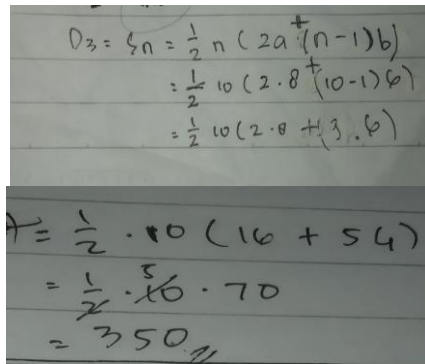 D3 = Sn = 1/2 n (2a + (n-1)b)
= 1/2 10 (2.8 + (10-1)6)
= 1/2 10 (2.8 + (3.6)
= 1/2 . 10 (16 + 54)
= 1/2 . 10 5 . 70
= 350 //